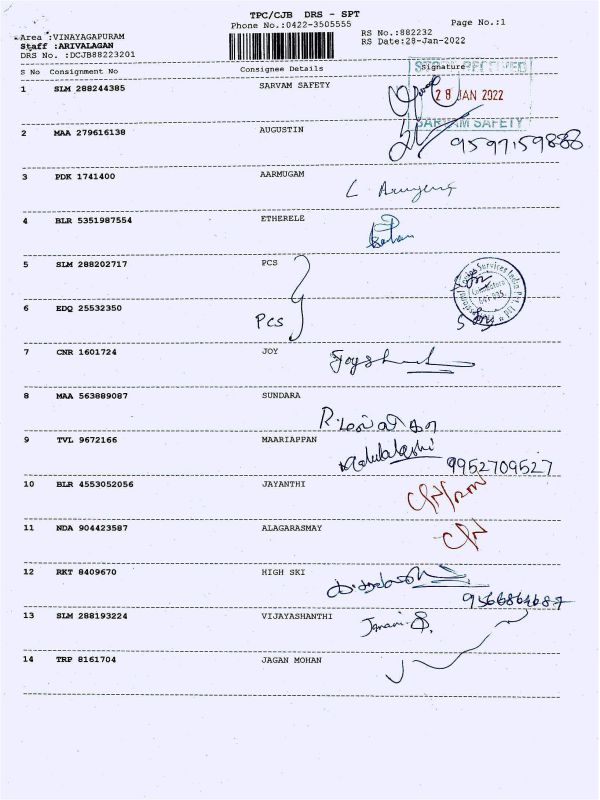 TPC/CJB DRS - SPT
Phone No.:0422-3505555
Page No.:1
Area :VINAYAGAPURAM
Staff :ARIVALAGAN
DRS No. :DCJB88223201
RS No.:882232
RS Date:28-Jan-2022
S No Consignment No Consignee Details Signature
1 SLM 288244385 SARVAM SAFETY
28 JAN 2022
SARVAM SAFETY
2 MAA 279616138 AUGUSTIN
9597159888
3 PDK 1741400 AARMUGAM
4 BLR 5351987554 ETHERELE
5 SLM 288202717 PCS
6 EDQ 25532350 Pcs
7 CNR 1601724 JOY
8 MAA 563889087 SUNDARA
9 TVL 9672166 MAARIAPPAN
9952709527
10 BLR 4553052056 JAYANTHI
11 NDA 904423587 ALAGARASMAY
12 RKT 8409670 HIGH SKI
13 SLM 288193224 VIJAYASHANTHI
14 TRP 8161704 JAGAN MOHAN